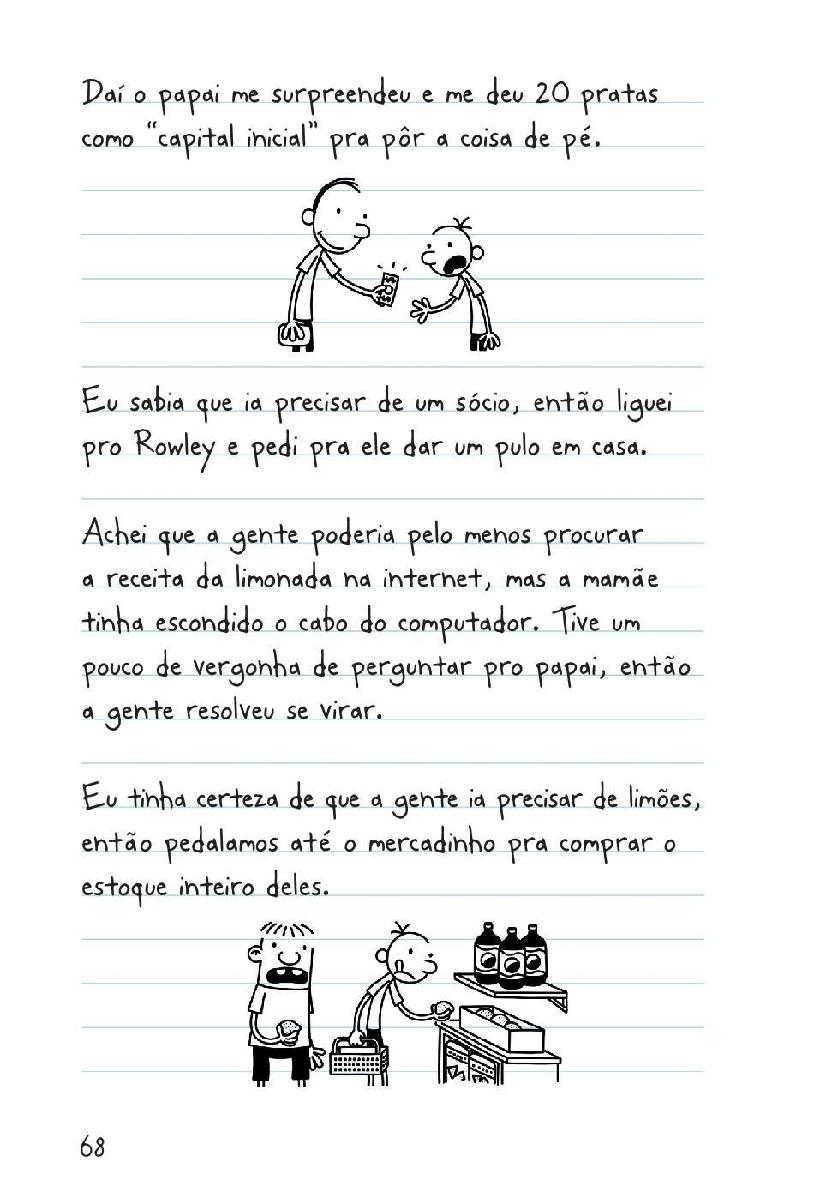 Daí o papai me surpreendeu e me deu 20 pratas
como “capital inicial” pra pôr a coisa de pé.
Eu sabia que ia precisar de um sócio, então liguei
pro Rowley e pedi pra ele dar um pulo em casa.
Achei que a gente poderia pelo menos procurar
a receita da limonada na internet, mas a mamãe
tinha escondido o cabo do computador. Tive um
pouco de vergonha de perguntar pro papai, então
a gente resolveu se virar.
Eu tinha certeza de que a gente ia precisar de limões,
então pedalamos até o mercadinho pra comprar o
estoque inteiro deles.
68